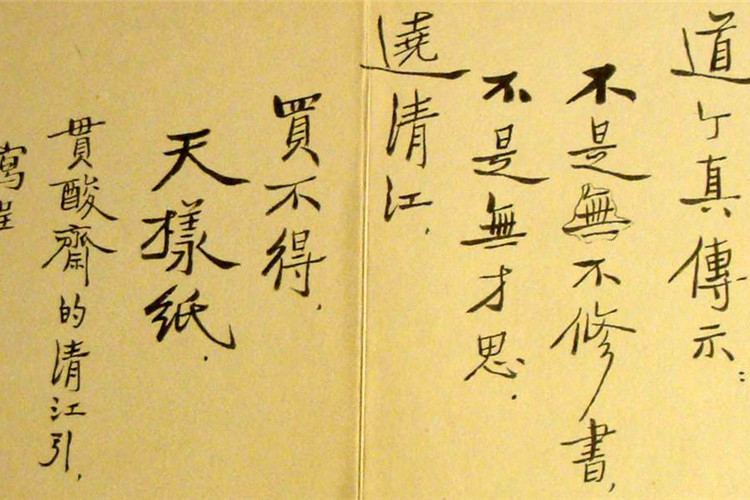 道个真傳示：
不是無不修書，
不是無才思．
遶清江，
買不得，
天樣紙．
貫酸齋的清江引，